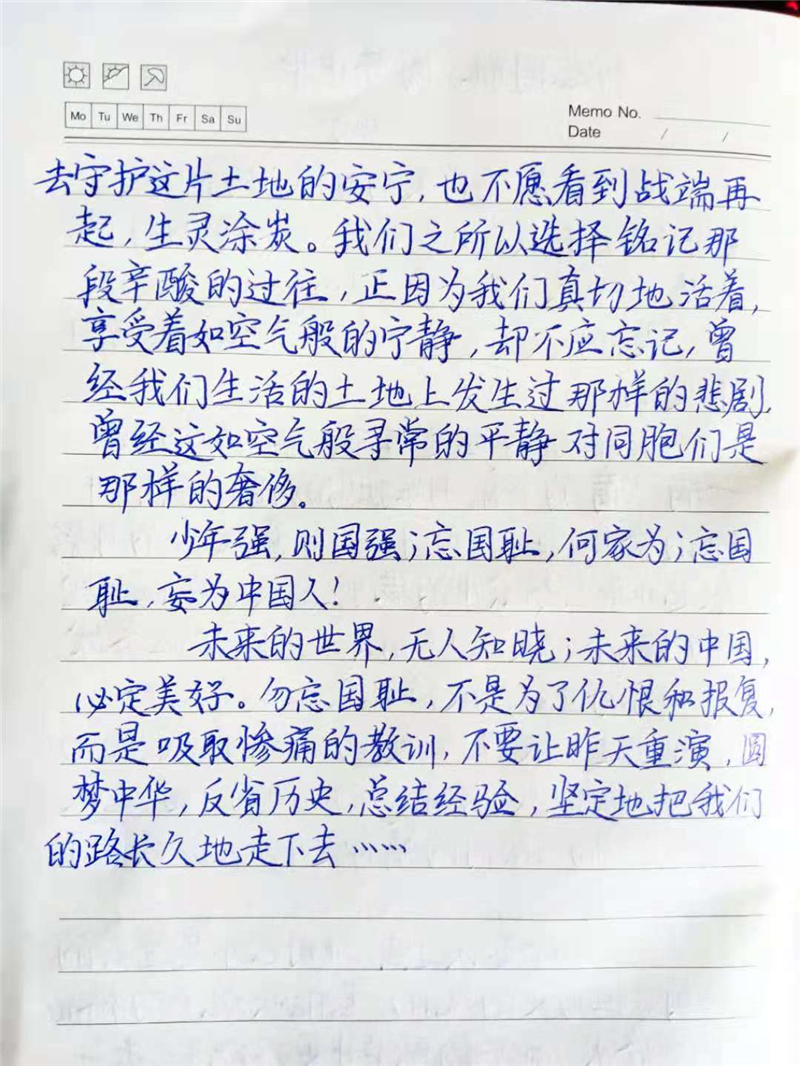 Mo Tu We Th Fr Sa Su
Memo No.
Date / /
去守护这片土地的安宁,也不愿看到战端再
起,生灵涂炭。我们之所以选择铭记那
段辛酸的过往,正因为我们真切地活着,
享受着如空气般的宁静,却不应忘记,曾
经我们生活的土地上发生过那样的悲剧,
曾经这如空气般寻常的平静对同胞们是
那样的奢侈。
少年强,则国强;忘国耻,何家为;忘国
耻,妄为中国人!
未来的世界,无人知晓;未来的中国,
必定美好。勿忘国耻,不是为了仇恨和报复,
而是吸取惨痛的教训,不要让昨天重演,圆
梦中华,反省历史,总结经验,坚定地把我们
的路长久地走下去……